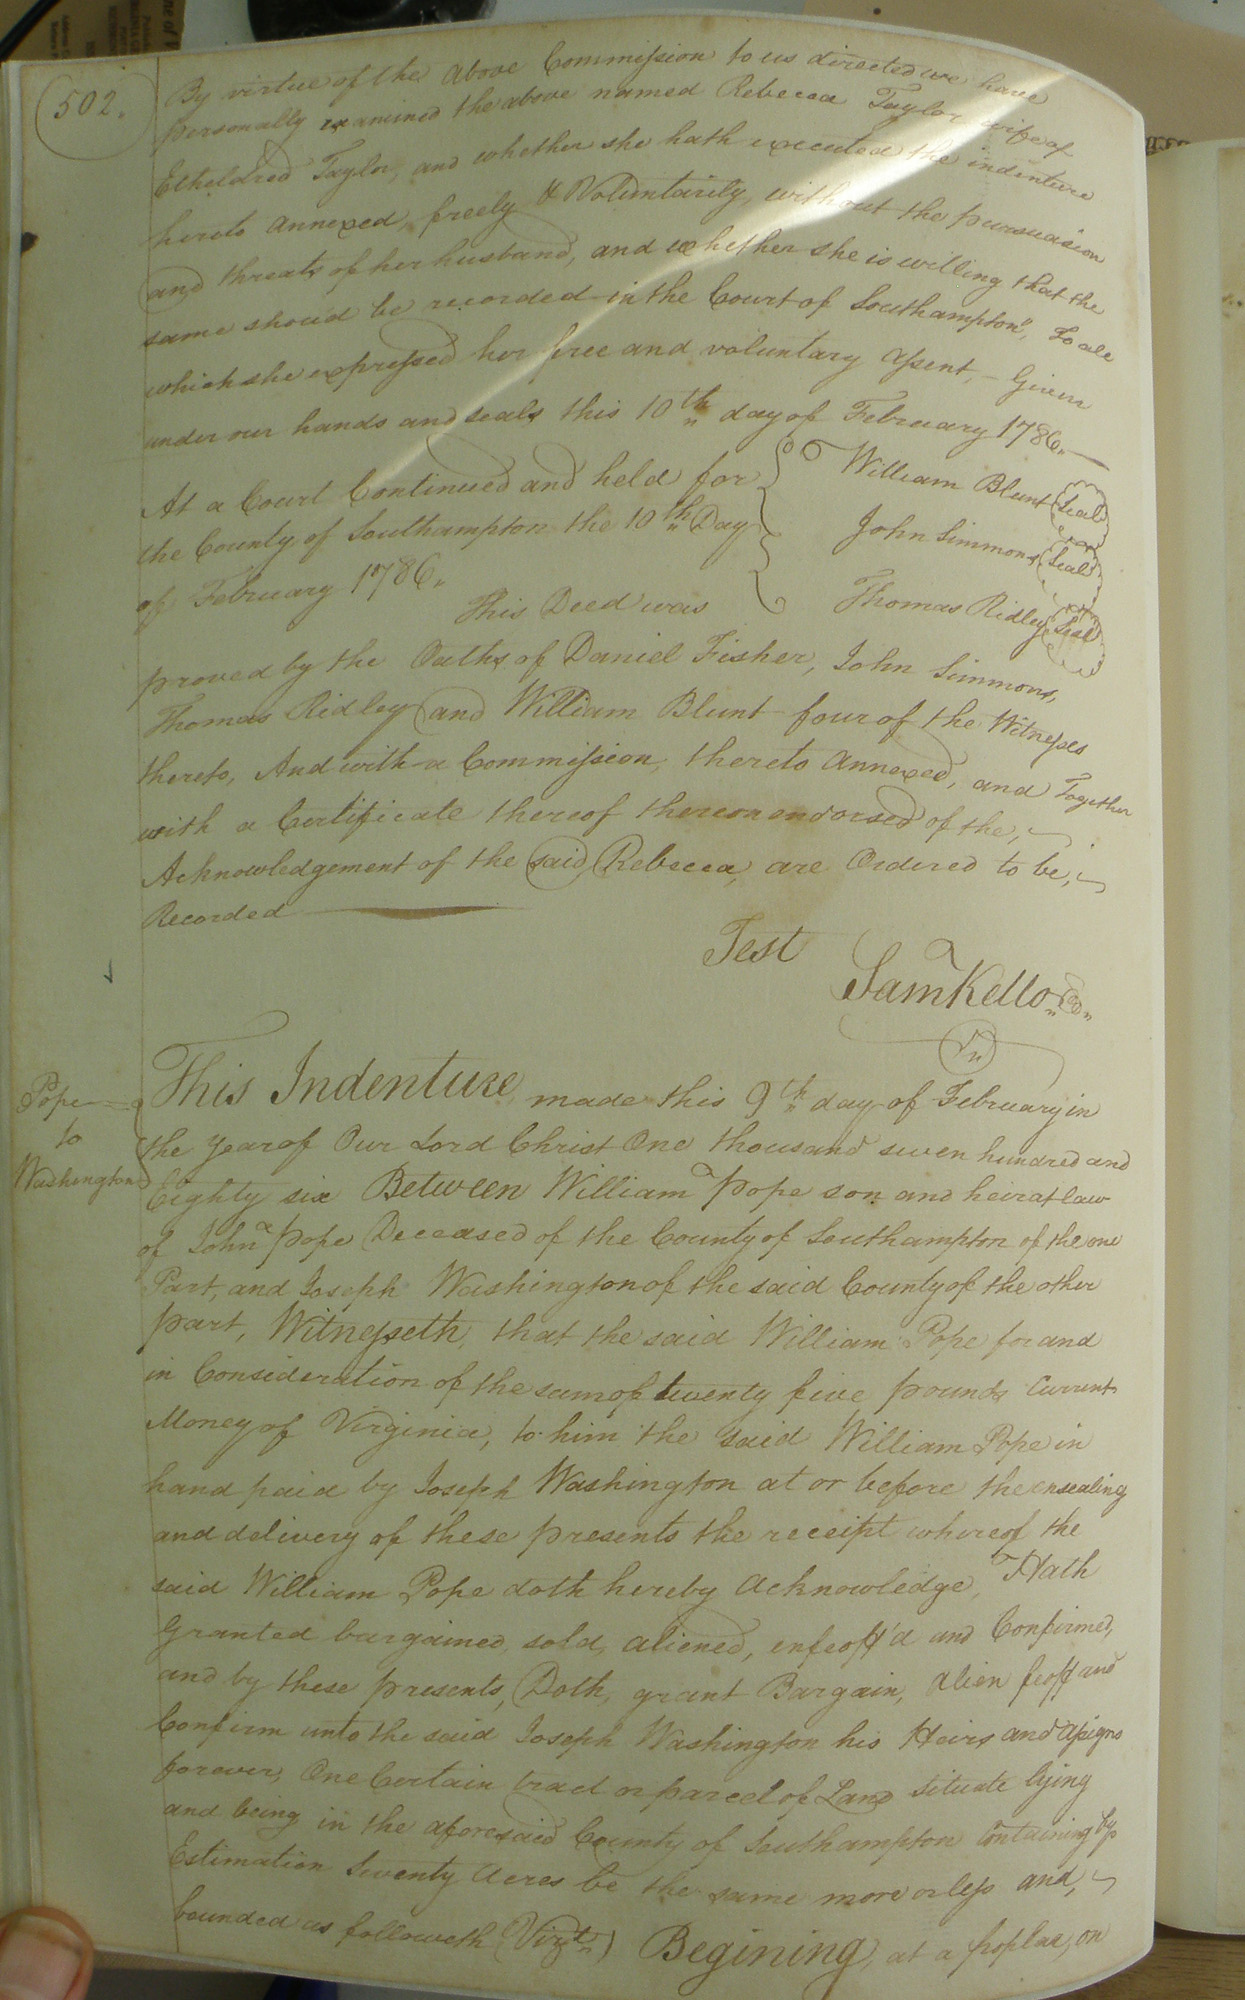 502.
By virtue of the above Commission to us directed we have
personally examined the above named Rebecca Taylor wife of
Etheldred Taylor, and whether she hath executed the indenture
hereto annexed, freely & Voluntarily, without the pursuasion
and threats of her husband, and whether she is willing that the
same should be recorded in the Court of Southampton, To all
which she expressed her free and voluntary assent, – Given
under our hands and seals this 10th day of February 1786. —
At a Court Continued and held for
the County of Southampton the 10th Day
of February 1786.
William Blunt Seal
John Simmons Seal
Thomas Ridley Seal
This Deed was
proved by the Oaths of Daniel Fisher, John Simmons,
Thomas Ridley and William Blunt four of the Witnesses
thereto, And with a Commission, thereto Annexed, and Together
with a Certificate thereof thereon endorsed of the,
Acknowledgement of the said Rebecca, are Ordered to be,
Recorded
Test
Sam Kello
Pope
to
Washington
This Indenture made this 9th day of February in
the year of Our Lord Christ One thousand seven hundred and
Eighty six Between William Pope son and heir at law
of John Pope Deceased of the County of Southampton of the one
Part, and Joseph Washington of the said County of the other
part, Witnesseth, that the said William Pope for and
in Consideration of the sum of twenty five pounds Current
Money of Virginia, to him the said William Pope in
hand paid by Joseph Washington at or before the ensealing
and delivery of these presents the receipt whereof the
said William Pope doth hereby Acknowledge, Hath
Granted bargained, sold, aliened, enfeoff'd and Confirmed,
and by these presents, Doth, grant Bargain, Alien feoff and
Confirm unto the said Joseph Washington his Heirs and Assigns
forever, One Certain tract or parcel of Land situate lying
and being in the aforesaid County of Southampton Containing by
Estimation Twenty Acres be the same more or less and,
bounded as followeth (Vizt.) Begining, at a poplar, on